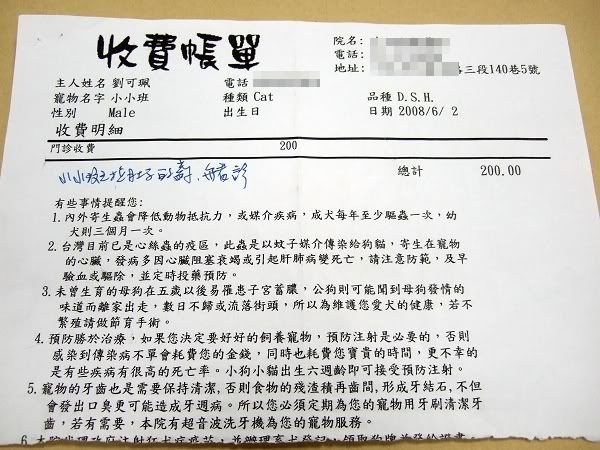 收費帳單
院名:
電話:
地址: 路三段140巷5號
主人姓名 劉可珮 電話
寵物名字 小小班 種類 Cat 品種 D.S.H.
性別 Male 出生日 日期 2008/6/ 2
收費明細
門診收費 200
小小班 看診
總計 200.00
有些事情提醒您:
1.內外寄生蟲會降低動物抵抗力，或媒介疾病，成犬每年至少驅蟲一次，幼
犬則三個月一次。
2.台灣目前已是心絲蟲的疫區，此蟲是以蚊子媒介傳染給狗貓，寄生在寵物
的心臟，發病多因心臟阻塞衰竭或引起肝肺病變死亡，請注意防範，及早
驗血或驅除，並定時投藥預防。
3.未曾生育的母狗在五歲以後易罹患子宮蓄膿，公狗則可能聞到母狗發情的
味道而離家出走，數日不歸或流落街頭，所以為維護您愛犬的健康，若不
繁殖請做節育手術。
4.預防勝於治療，如果您決定要好好的飼養寵物，預防注射是必要的，否則
感染到傳染病不單會耗費您的金錢，同時也耗費您寶貴的時間，更不幸的
是有些疾病有很高的死亡率。小狗小貓出生六週齡即可接受預防注射。
5.寵物的牙齒也是需要保持清潔,否則食物的殘渣積再齒間,形成牙結石,不但
會發出口臭更可能造成牙週病。所以您必須定期為您的寵物用牙刷清潔牙
齒，若有需要，本院有超音波洗牙機為您的寵物服務。
6.本院代理政府注射狂犬病疫苗，並辦理畜犬登記，領取狗牌並發給證書。